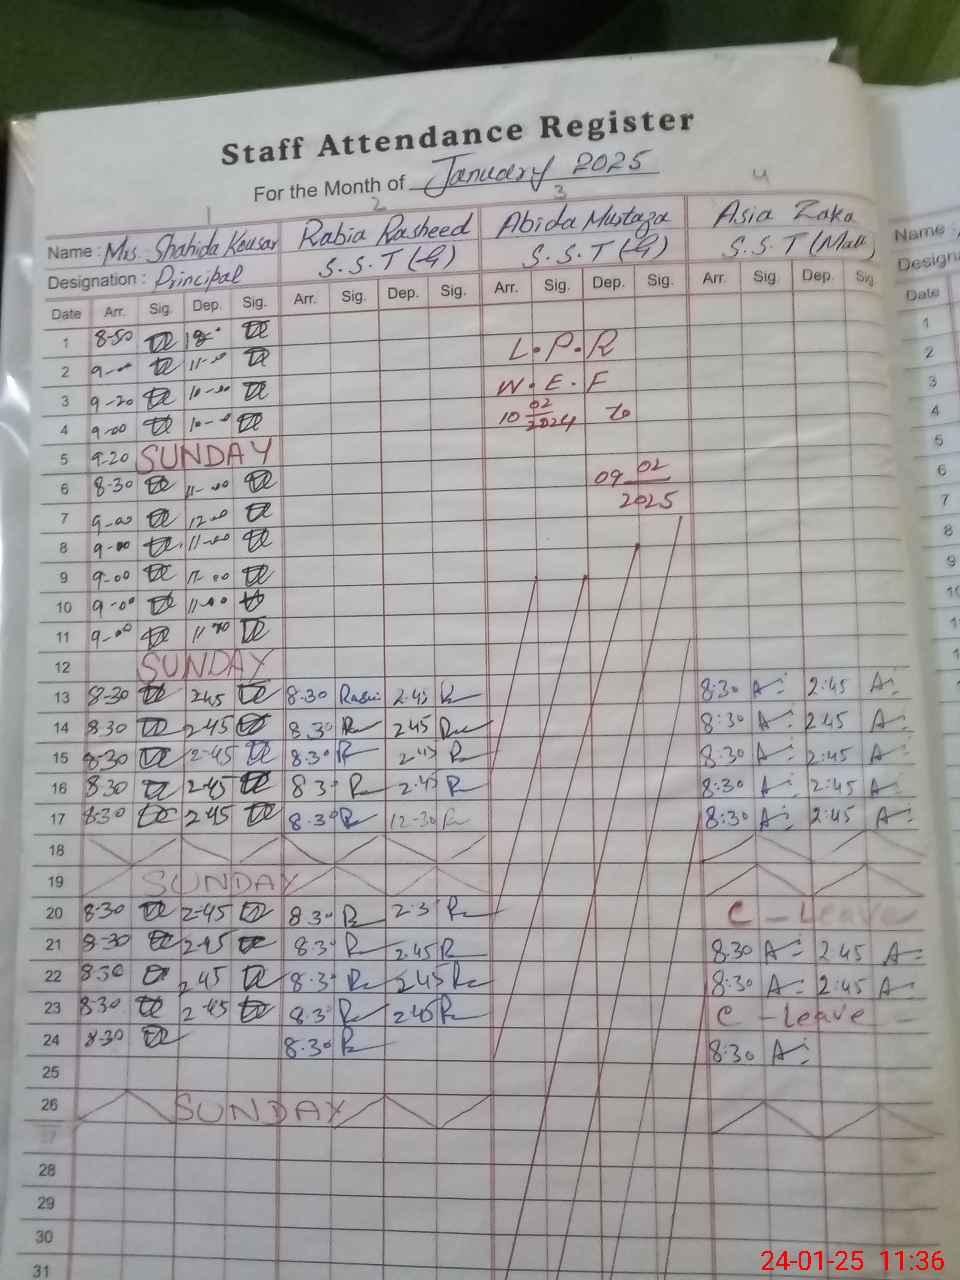 Staff Attendance Register
For the Month of January 2025
1 2 3 4
Name : Mrs. Shahida Kousar Rabia Rasheed Abida Mustaza Asia Zaka Name :
Designation : Principal S.S.T (G) S.S.T (G) S.S.T (Math)
Date Arr. Sig. Dep. Sig. Arr. Sig. Dep. Sig. Arr. Sig. Dep. Sig. Arr. Sig Dep. Sig. Date
1 8-50 1
2 9-00 11-00 L.P.R 2
3 9-20 10-00 W.E.F 3
4 9-00 10-00 10 02/2024 To 4
5 9-20 SUNDAY 5
6 8-30 11-00 09 02/2025 6
7 9-00 12-00 7
8 9-00 11-00 8
9 9-00 12-00 9
10 9-00 11-00 10
11 9-00 11
12 SUNDAY
13 8-30 245 8.30 2.45 8:30 A 2:45 A
14 8.30 2-45 8.30 R 245 R 8:30 A 2.45 A
15 8-30 2-45 8.30 R 2.45 R 8:30 A 2:45 A
16 8-30 2-45 8 30 R 2.45 R 8:30 A 2:45 A
17 8-30 2-45 8.30 R 12-30 R 8:30 A 2:45 A
18
19 SUNDAY
20 8-30 2-45 8.30 R 2.3 R C - Leave
21 8-30 2-45 8.30 R 2.45 R 8:30 A 2:45 A
22 8-30 2.45 8.30 R 2.45 R 8:30 A 2:45 A
23 8-30 2-45 8.30 R 2.45 R C - Leave
24 8-30 8.30 R 8:30 A
25
26 SUNDAY
27
28
29
30
31
24-01-25 11:36